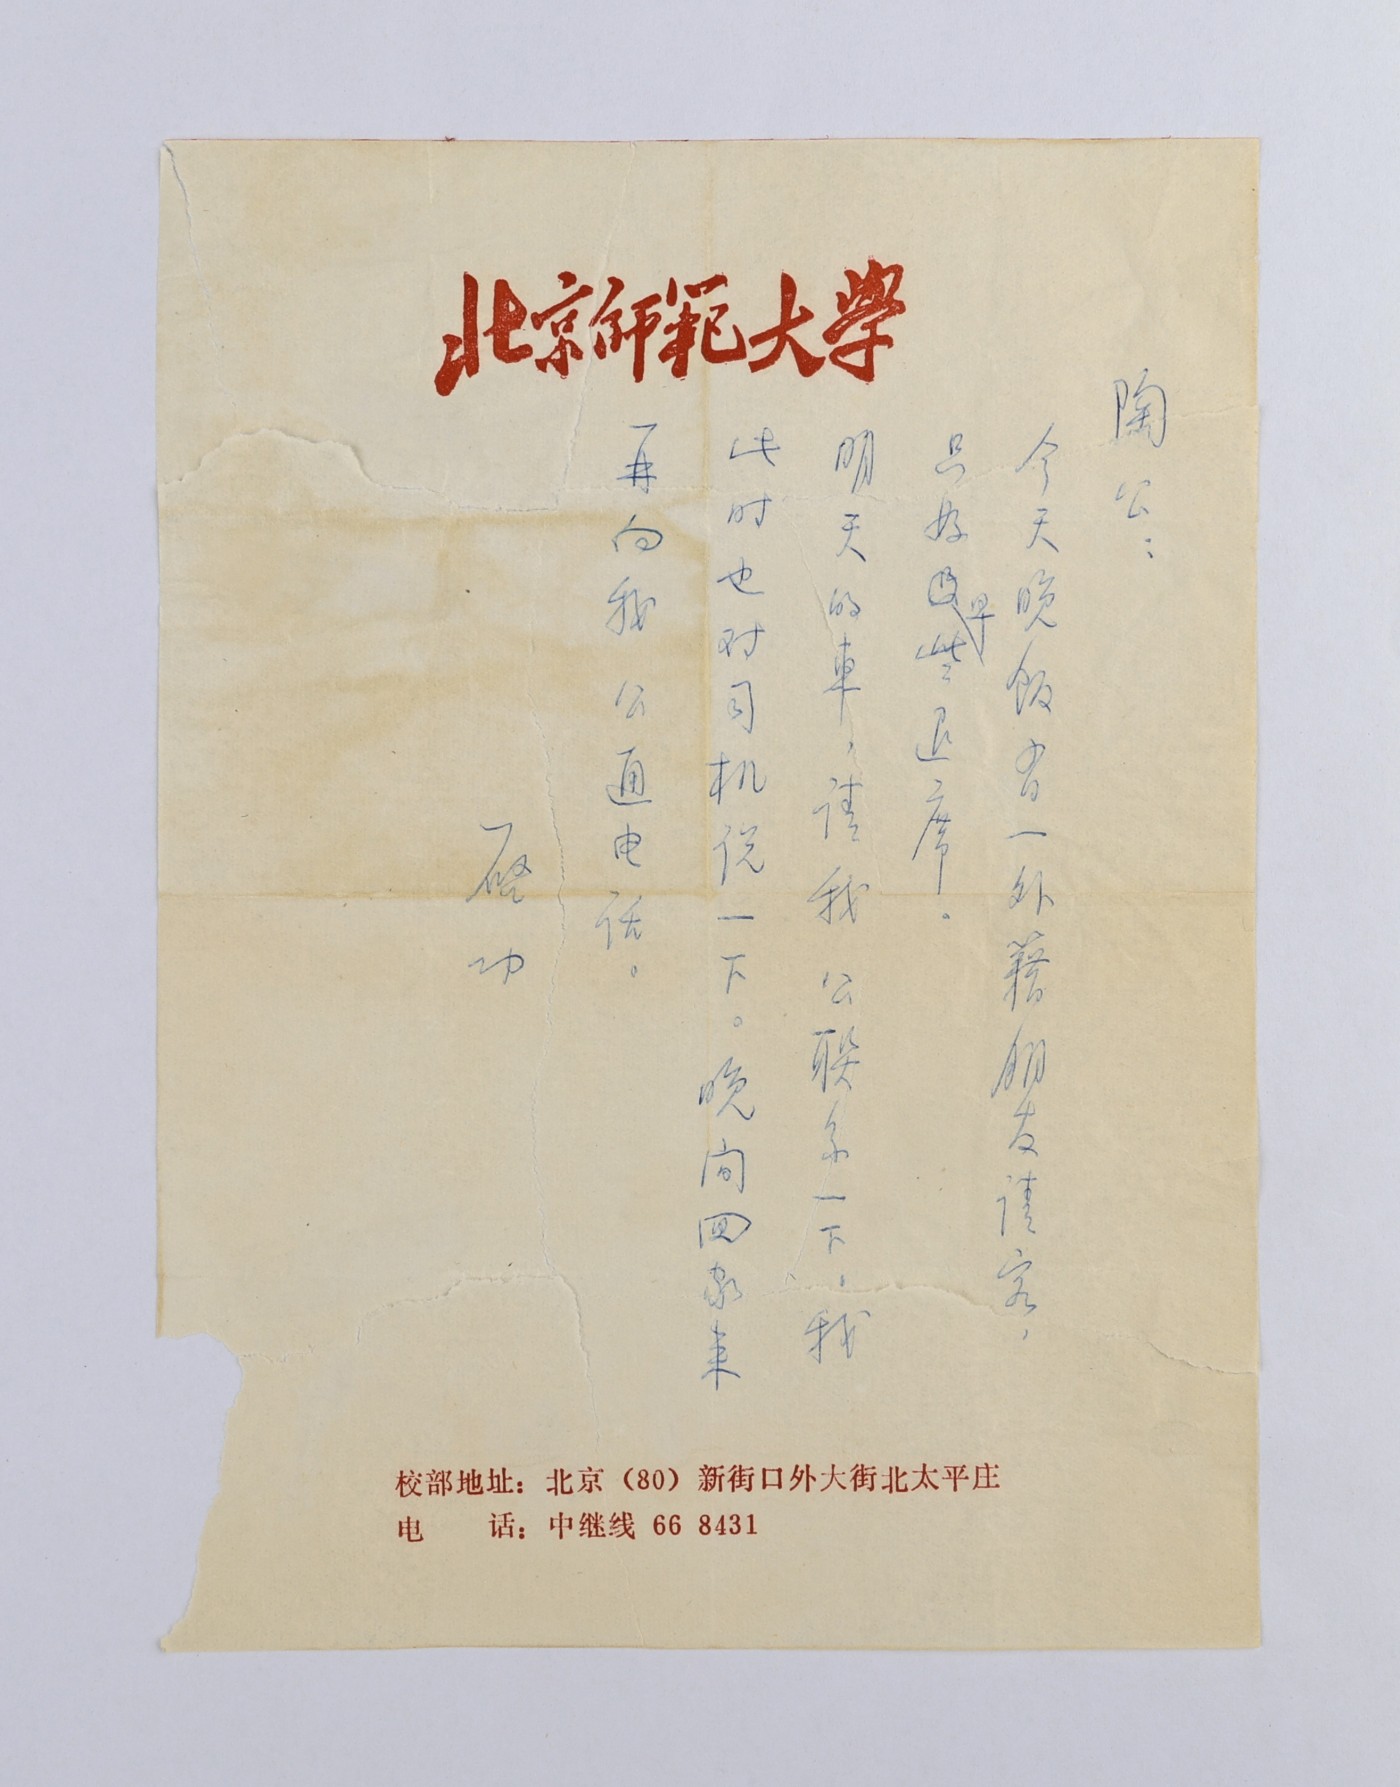 北京师範大學
陶公：
今天晚飯有一外籍朋友请客，
只好早些退席。
明天的車，请我 公联系一下，我
此时也对司机说一下。晚间回家来
再向我 公通电话。
启功
校部地址：北京（80）新街口外大街北太平庄
电　　话：中继线 66 8431